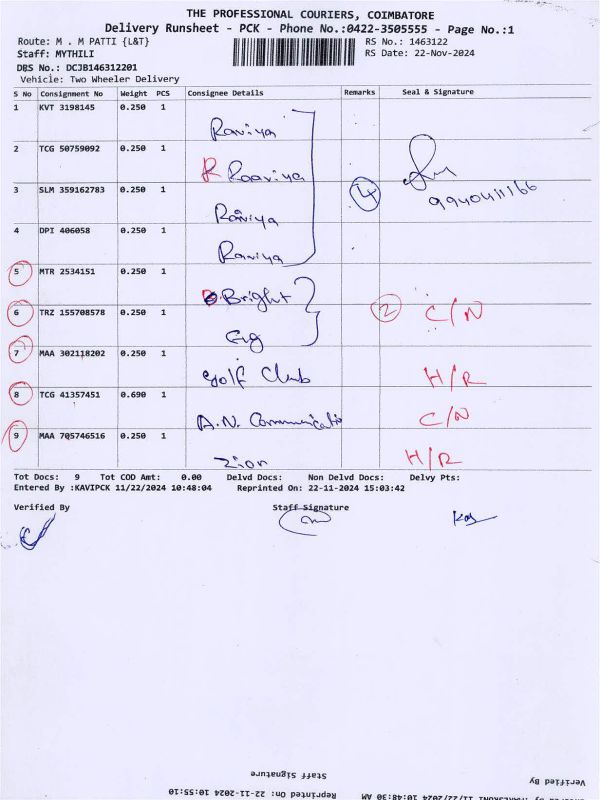 THE PROFESSIONAL COURIERS, COIMBATORE
Delivery Runsheet - PCK - Phone No.:0422-3505555 - Page No.:1
Route: M . M PATTI {L&T} RS No.: 1463122
Staff: MYTHILI RS Date: 22-Nov-2024
DRS No.: DCJB146312201
Vehicle: Two Wheeler Delivery
S No Consignment No Weight PCS Consignee Details Remarks Seal & Signature
1 KVT 3198145 0.250 1 Raviya
2 TCG 50759092 0.250 1 R Raaviya
3 SLM 359162783 0.250 1 Raviya 4 9940411166
4 DPI 406058 0.250 1 Raviya
5 MTR 2534151 0.250 1 Bright
6 TRZ 155708578 0.250 1 2 C/N
7 MAA 302118202 0.250 1 Golf Club H/R
8 TCG 41357451 0.690 1 A.N. Communicatio C/N
9 MAA 705746516 0.250 1 Zion H/R
Tot Docs: 9 Tot COD Amt: 0.00 Delvd Docs: Non Delvd Docs: Delvy Pts:
Entered By :KAVIPCK 11/22/2024 10:48:04 Reprinted On: 22-11-2024 15:03:42
Verified By Staff Signature
Staff Signature
Verified By
Reprinted On: 22-11-2024 10:55:10
11/22/2024 10:48:30 AM